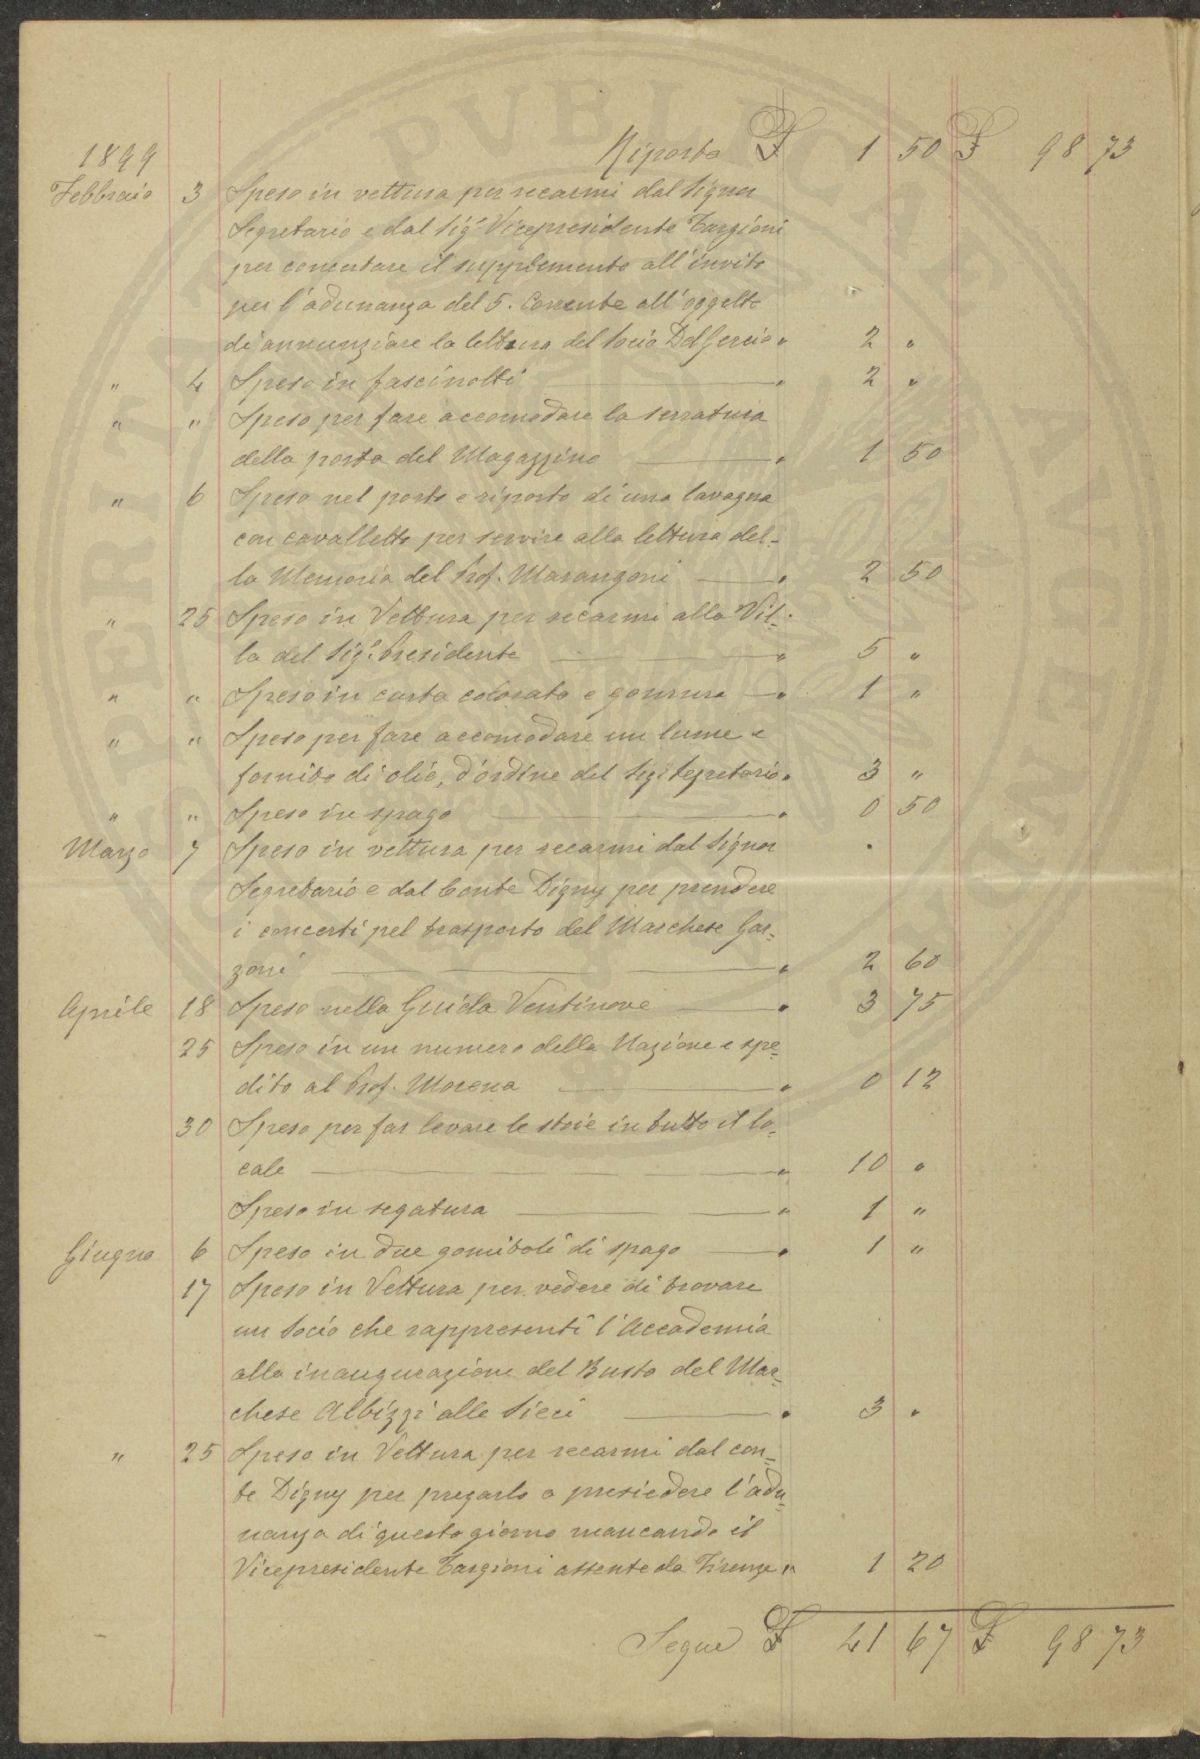 1899 Riporto £ 1 50 £ 98 73
Febbraio 3 Speso in vettura per recarmi dal Signor
Segretario e dal Sigr Vicepresidente Targioni
per concertare il supplemento all'invito
per l'adunanza del 5. Corrente all'oggetto
di annunziare la lettura del socio Del Greco " 2 "
" 4 Speso in fascinotti " 2 "
" " Speso per fare accomodare la serratura
della porta del Magazzino " 1 50
" 6 Speso nel porto e riporto di una lavagna
con cavalletto per servire alla lettura del-
la Memoria del Prof. Marangoni " 2 50
" 25 Speso in Vettura per recarmi alla Vil-
la del Sigr. Presidente " 5 "
" " Speso in carta colorata e gomma " 1 "
" " Speso per fare accomodare un lume e
fornito di olio, d'ordine del Sigr Segretario " 3 "
" " Speso in spago " 0 50
Marzo 7 Speso in vettura per recarmi dal Signor
Segretario e dal Conte Digny per prendere
i concerti pel trasporto del Marchese Gar-
zoni " 2 60
Aprile 18 Speso nella Guida Ventinove " 3 75
25 Speso in un numero della Nazione e spe-
dito al Prof. Morena " 0 12
30 Speso per far levare le stoie in tutto il lo-
cale " 10 "
Speso in segatura " 1 "
Giugno 6 Speso in due gomitoli di spago " 1 "
17 Speso in Vettura per vedere di trovare
un Socio che rappresenti l'Accademia
alla inaugurazione del Busto del Mar-
chese Albizzi alle Sieci " 3 "
" 25 Speso in Vettura per recarmi dal con-
te Digny per pregarlo a presiedere l'adu-
nanza di questo giorno mancando il
Vicepresidente Targioni assente da Firenze " 1 20
Segue £ 41 67 £ 98 73